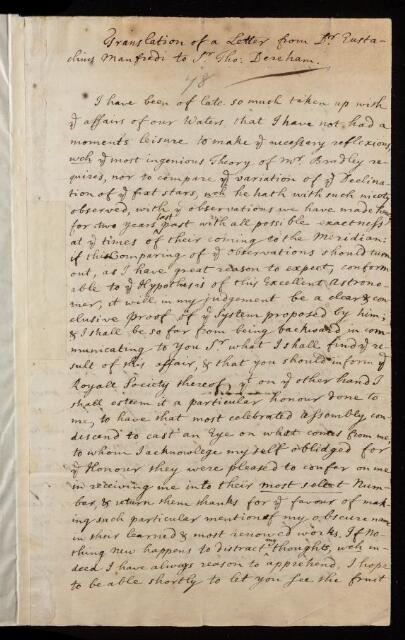 Translation of a Letter from Dr. Eusta-
chius Manfredi to Sr. Tho: Dereham.
78
I have been of late so much taken up with
ye affairs of our Waters, that I have not had a
moments leisure to make ye necessary reflexions
wch ye most ingenious Theory of Mr. Bradley re-
quires, nor to compare ye variation of ye Declina-
tion of ye fixt stars, wch he hath with such nicety
observed, with ye observations we have made here
for two years last past with all possible exactness
at ye times of their coming to the Meridian:
if this Comparing of ye observations should turn
out, as I have great reason to expect, conform
able to ye Hypothesis of this Excellent Astrono-
mer, it will in my judgement be a clear & con
clusive proof of ye System proposed by him;
& I shall be so far from being backward in com-
municating to You Sr. what I shall find ye re-
sult of this affair, & that you should inform ye
Royall Society thereof, yt on ye other hand I
shall esteem it a particular Honour done to
me, to have that most celebrated Assembly con-
descend to cast an Eye on what comes from me,
to whom I acknowlege my self oblidged for
ye Honour they were pleased to confer on me
in receiving me into their most select Num-
ber, & return them thanks for ye favour of mak-
ing such particular mention of my obscure name
in their learned & most renowned works. If No-
thing new happens to distract my thoughts, wch in-
deed I have always reason to apprehend, I hope
to be able shortly to let you see the fruit